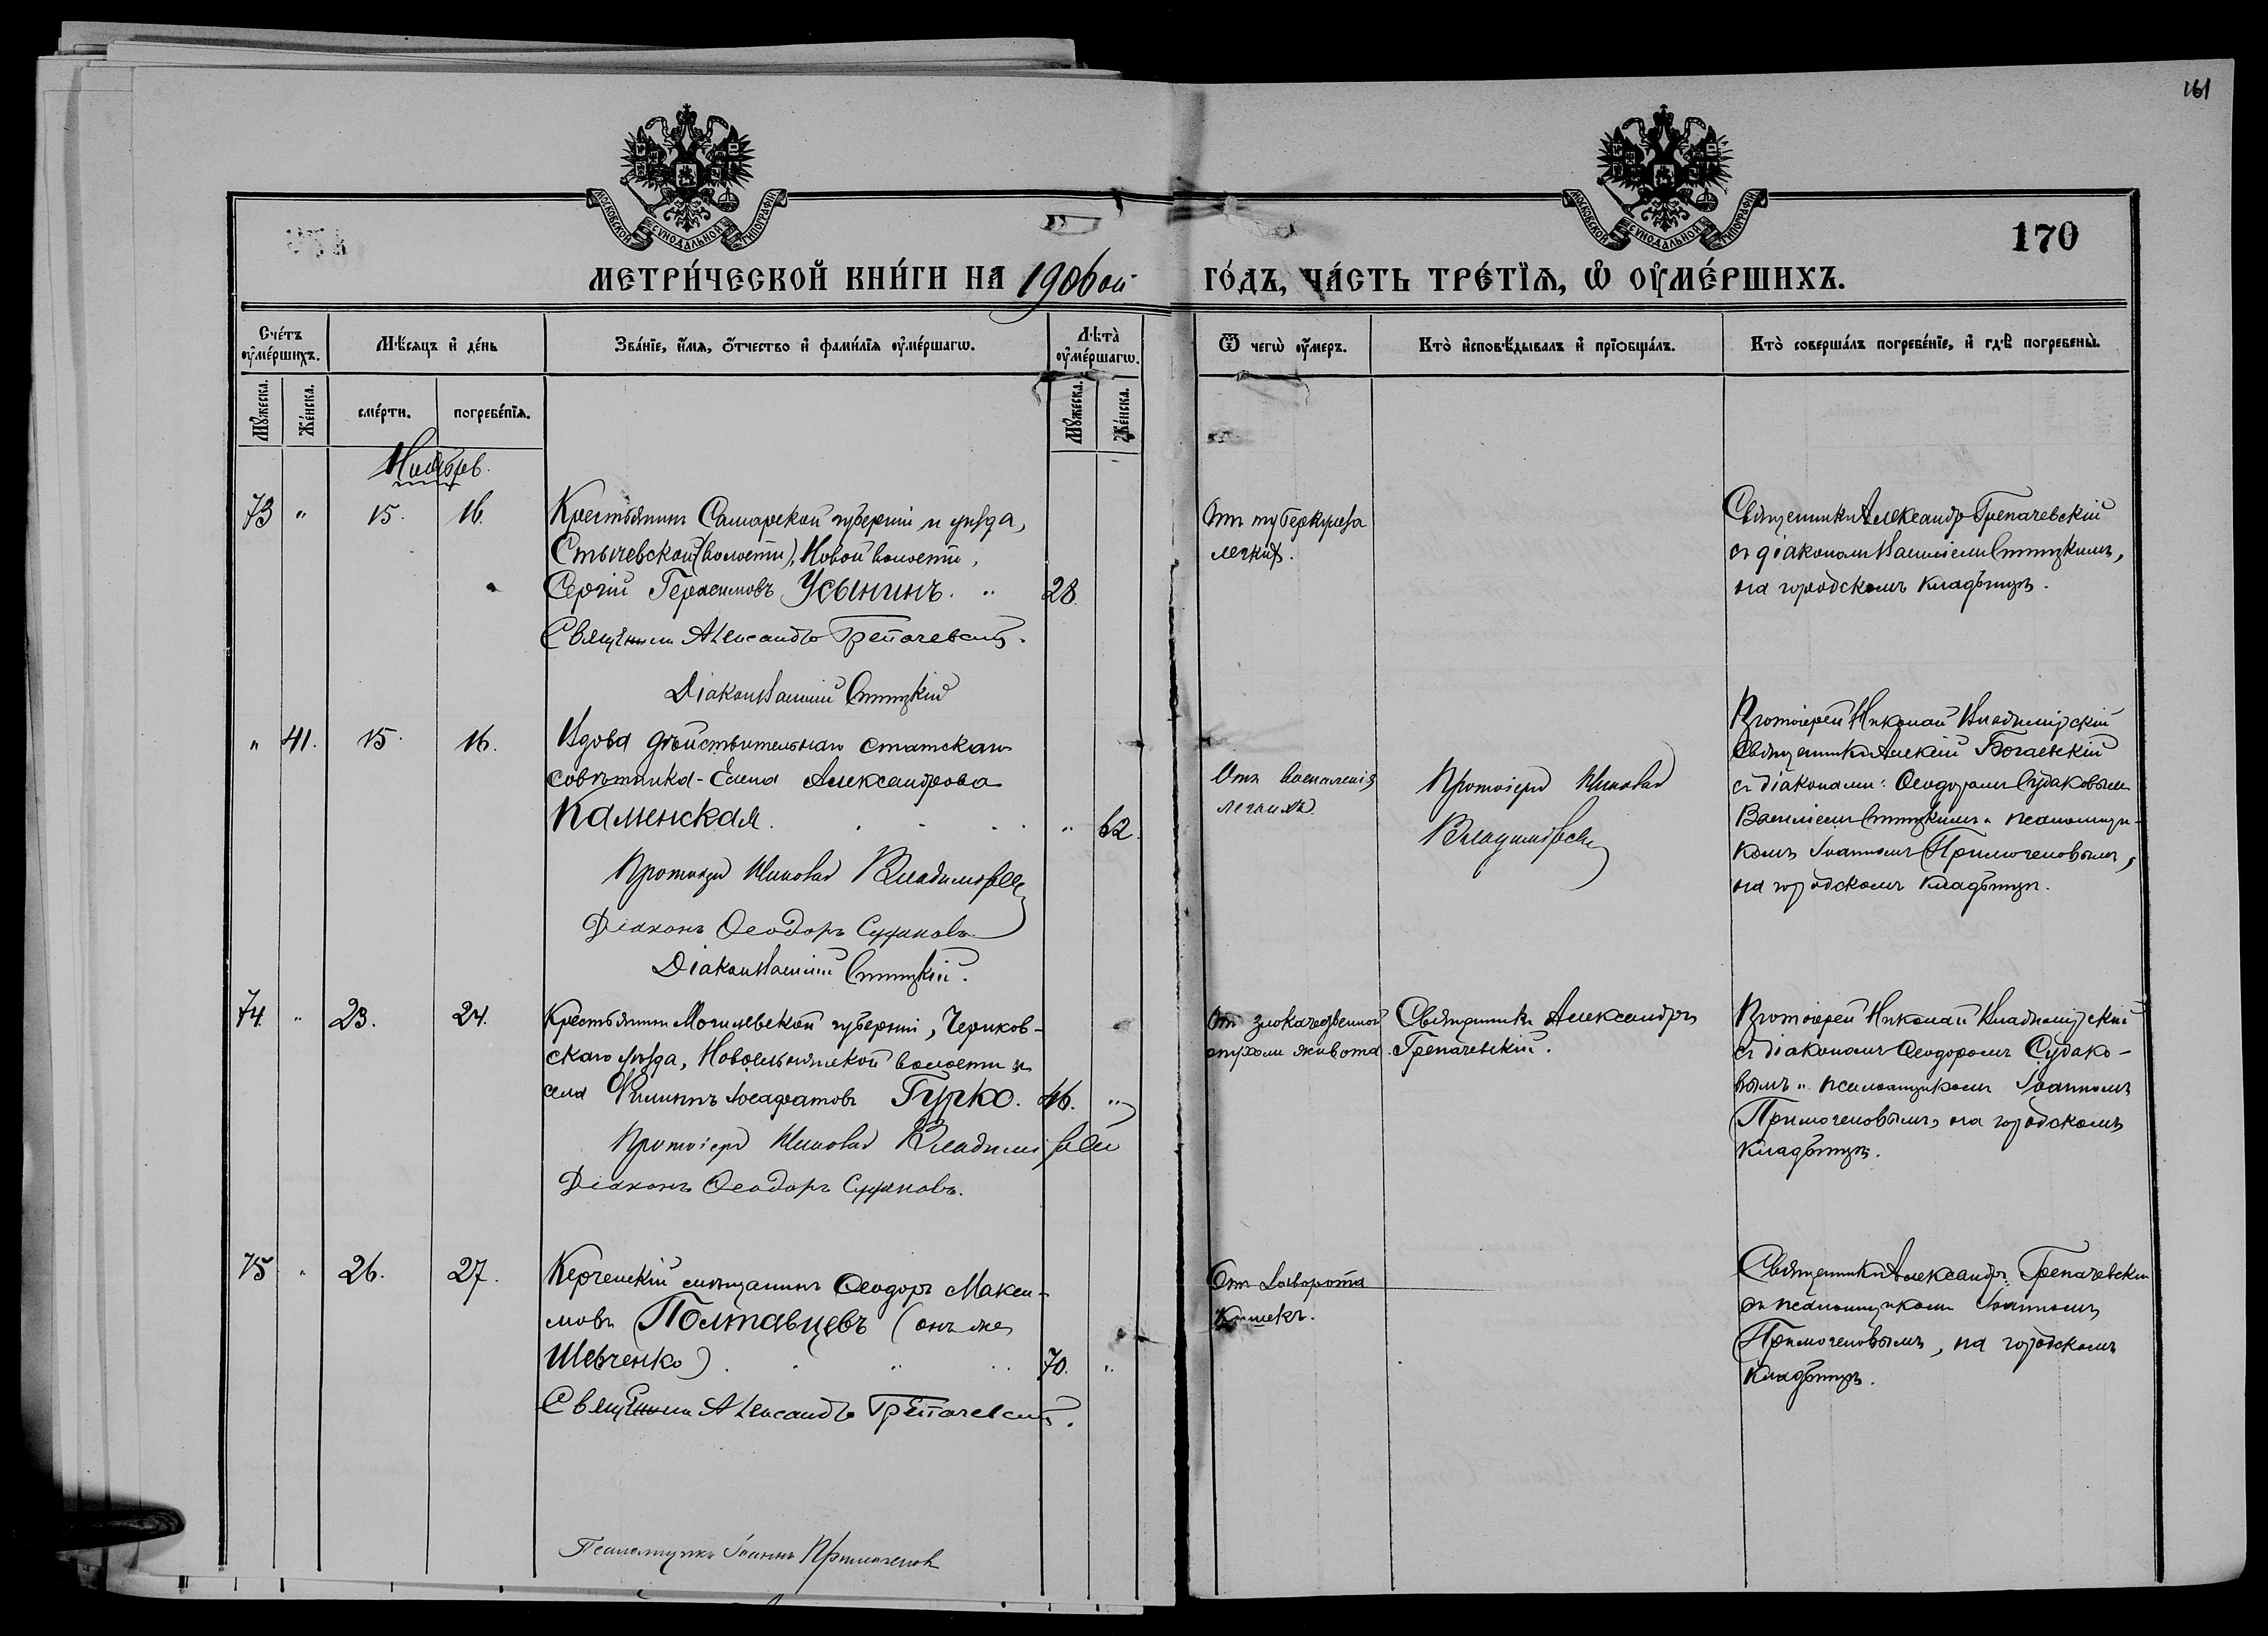 161
МОСКОВСКОЙ СѴНОДАЛЬНОЙ ТИПОГРАФІИ
МОСКОВСКОЙ СѴНОДАЛЬНОЙ ТИПОГРАФІИ
170
МЕТРИ́ЧЕСКОЙ КНИ́ГИ НА 1906ой ГО́ДЪ, ЧА́СТЬ ТРЕ́ТЇѦ, Ѡ ОУМЕ́РШИХЪ.
Сче́тъ оумершихъ.
Мѣсяцъ и де́нь
Зва́нїе, и́мя, о́тчество и фами́лїя оуме́ршагѡ.
Лѣта̀ оуме́ршагѡ.
Ѿ чегѡ̀ оу́меръ.
Кто̀ исповѣдывалъ и прїѡбща́лъ.
Кто̀ соверша́лъ погребе́нїе, и гдѣ погребены̀.
Мꙋжеска.
Же́нска.
сме́рти.
погребе́нїя.
Мꙋжеска.
Же́нска.
Ноябрь.
73 " 15. 16.
Крестьянинъ Самарской губерніи и уѣзда,
(волости), Новой волости,
Сергій Герасимовъ Усынинъ. " 28
Священникъ Александръ Грепачевскій.
Діаконъ Василій
Отъ туберкулеза
легкихъ.
Священникъ Александръ Грепачевскій
съ діакономъ Василіемъ
на городскомъ кладбищѣ.
" 41. 15. 16.
Вдова дѣйствительнаго статскаго
совѣтника - Елена Александрова
Каменская. " 62.
Протоіерей Николай Владимірскій
Діаконъ Ѳеодоръ Судаковъ
Діаконъ Василій
Отъ воспаленія
легкихъ
Протоіерей Николай
Владимірскій
Протоіерей Николай Владимірскій
Священникъ Алексій Богаевскій
съ діаконами: Ѳеодоромъ Судаковымъ
Василіемъ и псаломщи-
комъ Іоанномъ Примоченовымъ,
на городскомъ кладбищѣ.
74. " 23. 24.
Крестьянинъ Могилевской губерніи, Чериков-
скаго уѣзда, волости и
села Филиппъ Іосафатовъ Гурко. 46. "
Протоіерей Николай Владимірскій
Діаконъ Ѳеодоръ Судаковъ.
От злокачественной
опухоли живота.
Священникъ Александръ
Грепачевскій.
Протоіерей Николай Владимірскій
съ діакономъ Ѳеодоромъ Судако-
вымъ и псаломщикомъ Іоанномъ
Примоченовымъ, на городскомъ
кладбищѣ.
75 " 26. 27.
Керченскій мѣщанинъ Ѳеодоръ Макси-
мовъ Полтавцевъ (онъ же
Шевченко) 70. "
Священникъ Александръ Грепачевскій.
Отъ заворота
кишекъ.
Священникъ Александръ Грепачевскій
съ псаломщикомъ Іоанномъ
Примоченовымъ, на городскомъ
кладбищѣ.
Псаломщикъ Іоаннъ Примоченовъ